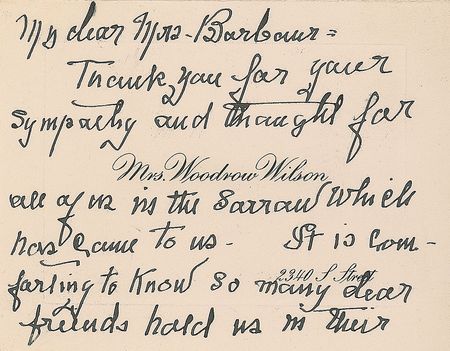 My dear Mrs. Barbour =
Thank you for your
sympathy and thought for
Mrs. Woodrow Wilson
all of us in the sorrow which
has come to us. It is com-
2340 S Street
forting to know so many dear
friends hold us in their